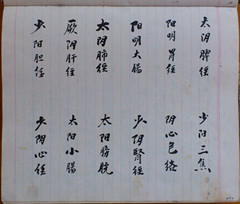 太阴脾經
阳明胃經
阳明大腸
太阴肺經
厥阴肝經
少阳胆经
少阳三焦
阴心包络
少阴腎經
太阳膀胱
太阳小腸
少阴心经